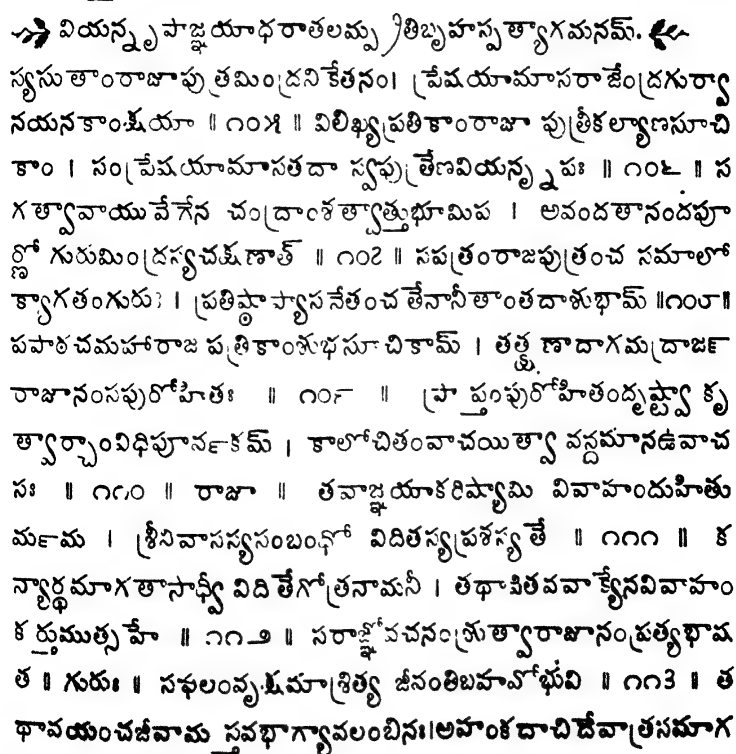 వియన్నృపాజ్ఞయాధరాతలమ్ప్రతిబృహస్పత్యాగమనమ్.
స్యసుతాంరాజాపుత్రమింద్రనికేతనం। ప్రేషయామాసరాజేంద్రగుర్వా
నయనకాంక్షయా ॥ ౧౦౫ ॥ విలిఖ్యప్రతికాంరాజా పుత్రీకల్యాణసూచి
కాం । సంప్రేషయామాసతదా స్వపుత్రేణవియన్నృపః ॥ ౧౦౬ ॥ స
గత్వావాయువేగేన చంద్రాంశత్వాత్తుభూమిప । అవందతానందపూ
ర్ణో గురుమింద్రస్యచక్షణాత్ ॥ ౧౦౭ ॥ సపత్రంరాజపుత్రంచ సమాలో
క్యాగతంగురుః । ప్రతిష్ఠాప్యాసనేతంచ తేనానీతాంతదాశుభామ్ ॥౧౦౮॥
పపాఠచమహారాజ పత్రికాంశుభసూచికామ్ । తత్క్షణాదాగమద్రాజ౯
రాజానంసపురోహితః ॥ ౧౦౯ ॥ ప్రాప్తంపురోహితందృష్ట్వా కృ
త్వార్చాంవిధిపూర్వ౯కమ్ । కాలోచితంవాచయిత్వా వన్దమానఉవాచ
సః ॥ ౧౧౦ ॥ రాజా ॥ తవాజ్ఞయాకరిష్యామి వివాహందుహితు
మ౯మ । శ్రీనివాసస్యసంబంధో విదితస్యప్రశస్యతే ॥ ౧౧౧ ॥ క
న్యార్థమాగతాసాధ్వీ విదితేగోత్రనామనీ । తథాపితవవాక్యేనవివాహం
కర్తుముత్సహే ॥ ౧౧౨ ॥ సరాజ్ఞోవచనంశ్రుత్వారాజానంప్రత్యభాష
త ॥ గురుః ॥ సఫలంవృక్షమాశ్రిత్య జీనంతిబహవోభువి ॥ ౧౧౩ ॥ త
థావయంచజీవామ స్తవభాగ్యావలంబినః।అహంకదాచిదేవాత్రసమాగ